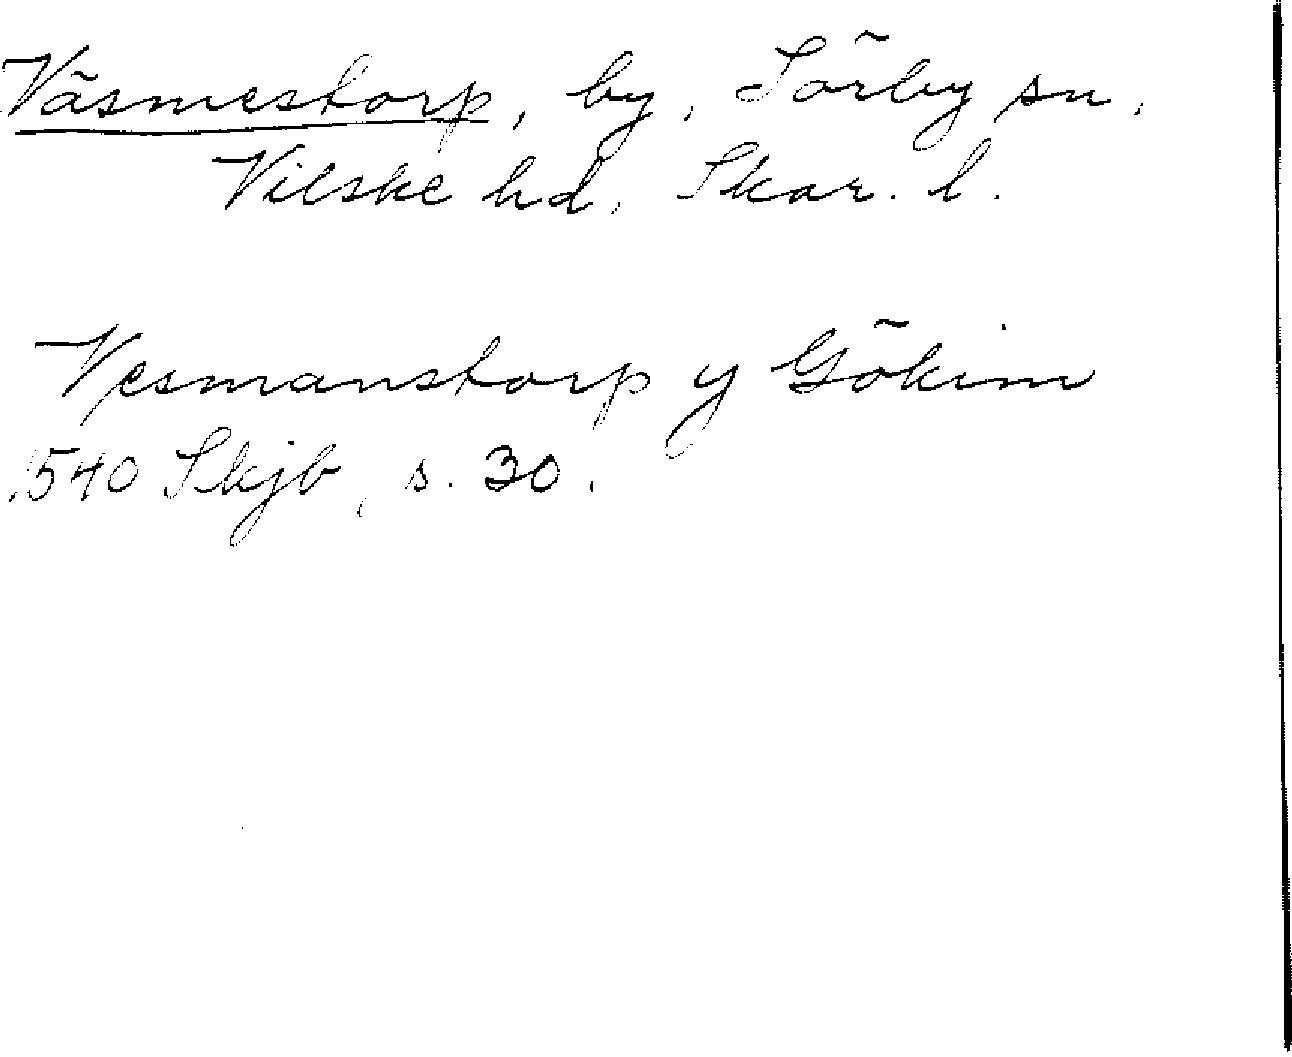 Väsmestorp, by, Sörby sn,
Vilske hd, Skar. l.
Vesmanstorp y Gökim
1540 Skjb, s. 30.